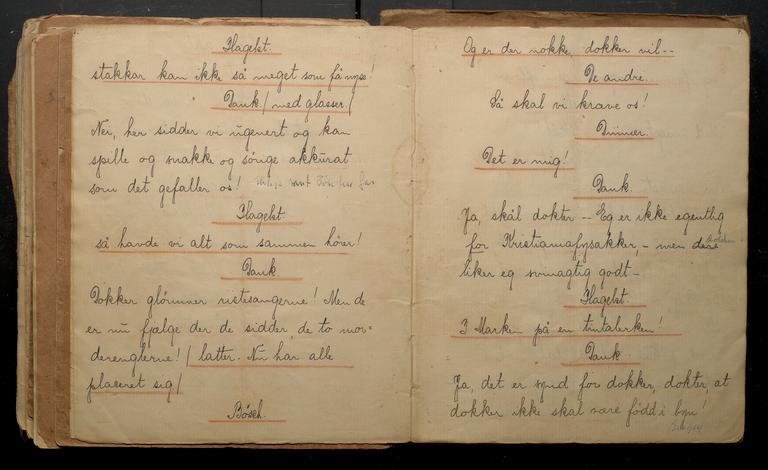 Flagelst.
stakkar kan ikke så meget som få nyse!
Dank / med glasser. /
Nei, her sidder vi ugenert og kan
spille og snakke og synge akkurat
som det gefaller os!
Flagelst
så havde vi alt som sammen hører!
Dank
Dokker glømmer ristesangerne! Men de
er nu fjælge der de sidder, de to mor-
derenglerne! / latter. Nu har alle
placeret sig /
Bösch.
Og er der nokke dokker vil --
De andre.
Så skal vi krave os!
Det er mig!
Dank.
Ja, skål dokter -- Eg er ikke egentlig
for Kristianiafysakker, - men dere
liker eg svinagtig godt -
Flagelst.
3 Marken på en tintalerken!
Dank
Ja, det er synd for dokker, dokter, at
dokker ikke skal være född i byn!